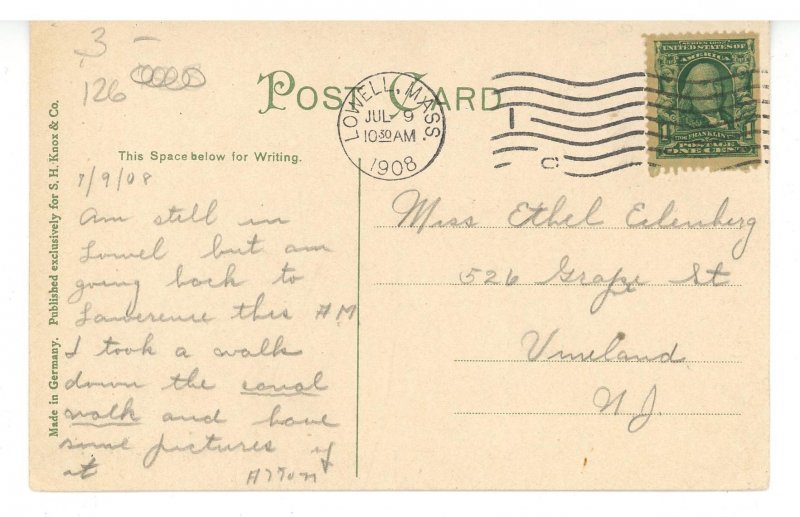 3 -
126
POST CARD
LOWELL, MASS.
JUL 9
10 30 AM
1908
SERIES 1902
UNITED STATES OF
AMERICA
FRANKLIN
POSTAGE
ONE CENT
This Space below for Writing.
7/9/08
Am still in
Lowel but am
going back to
Lawerense this AM
I took a walk
down the canal
walk and have
some pictures of
it
Miss Ethel Eilenberg
526 Grape St
Vineland
N J.
Made in Germany. Published exclusively for S. H. Knox & Co.